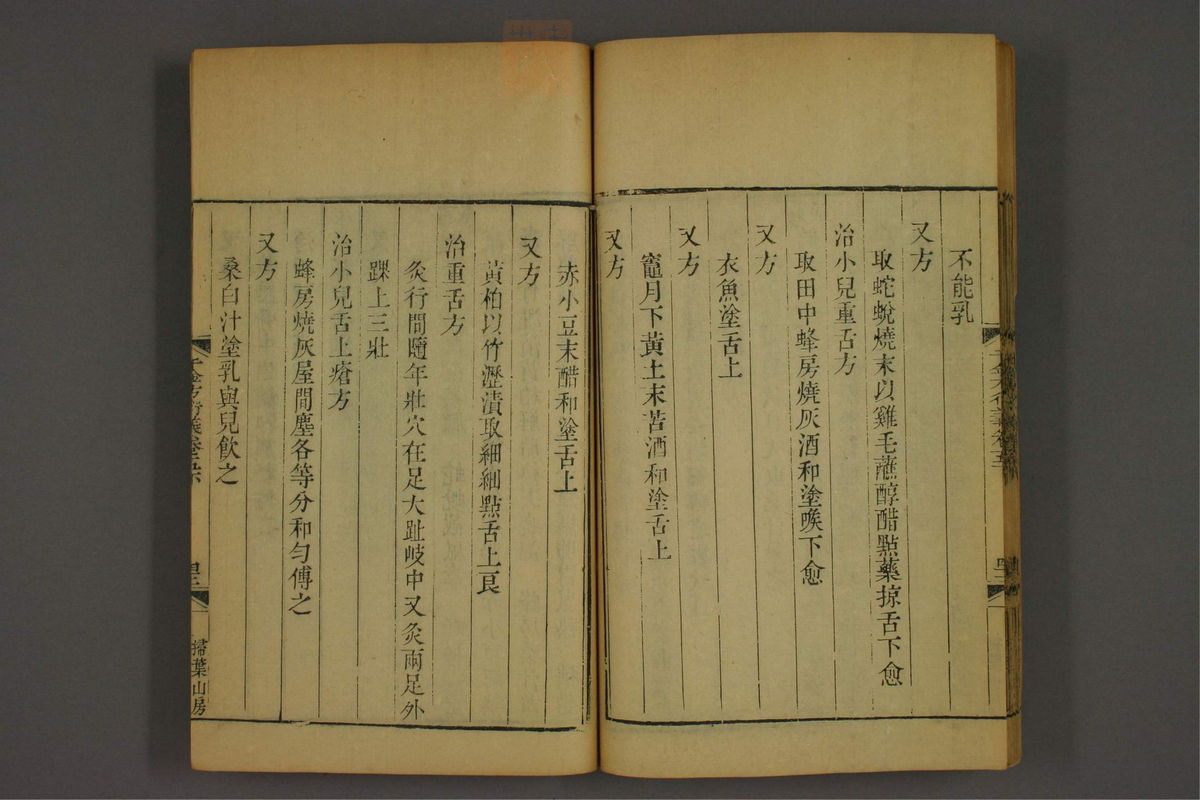 不能乳
又方
取蛇蛻燒末以雞毛蘸醇醋點藥掠舌下愈
治小兒重舌方
取田中蜂房燒灰酒和塗喉下愈
又方
衣魚塗舌上
又方
竈月下黃土末苦酒和塗舌上
又方
赤小豆末醋和塗舌上
又方
黃柏以竹瀝漬取細細點舌上良
治重舌方
灸行間隨年壯穴在足大趾岐中又灸兩足外
踝上三壯
治小兒舌上瘡方
蜂房燒灰屋間塵各等分和勻傅之
又方
桑白汁塗乳與兒飲之
千金方衍義卷五
掃葉山房